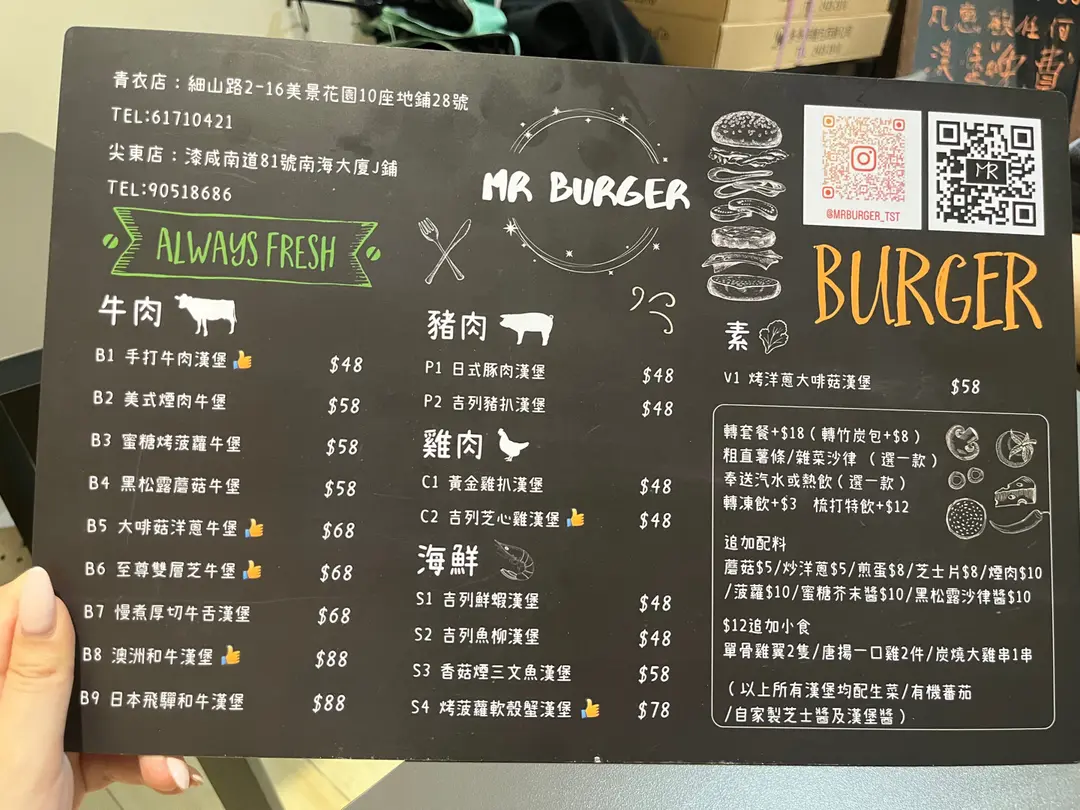 凡惠顧任何
漢堡 免費
青衣店：細山路2-16美景花園10座地鋪28號
TEL:61710421
尖東店：漆咸南道81號南海大廈J鋪
TEL:90518686
ALWAYS FRESH
MR BURGER
@MRBURGER_TST
MR
BURGER
牛肉
B1 手打牛肉漢堡 $48
B2 美式煙肉牛堡 $58
B3 蜜糖烤菠蘿牛堡 $58
B4 黑松露蘑菇牛堡 $58
B5 大啡菇洋蔥牛堡 $68
B6 至尊雙層芝牛堡 $68
B7 慢煮厚切牛舌漢堡 $68
B8 澳洲和牛漢堡 $88
B9 日本飛驒和牛漢堡 $88
豬肉
P1 日式豚肉漢堡 $48
P2 吉列豬扒漢堡 $48
雞肉
C1 黃金雞扒漢堡 $48
C2 吉列芝心雞漢堡 $48
海鮮
S1 吉列鮮蝦漢堡 $48
S2 吉列魚柳漢堡 $48
S3 香菇煙三文魚漢堡 $58
S4 烤菠蘿軟殼蟹漢堡 $78
素
V1 烤洋蔥大啡菇漢堡 $58
轉套餐+$18（轉竹炭包+$8）
粗直薯條/雜菜沙律（選一款）
奉送汽水或熱飲（選一款）
轉凍飲+$3 梳打特飲+$12
追加配料
蘑菇$5/炒洋蔥$5/煎蛋$8/芝士片$8/煙肉$10
/菠蘿$10/蜜糖芥末醬$10/黑松露沙律醬$10
$12追加小食
單骨雞翼2隻/唐揚一口雞2件/炭燒大雞串1串
（以上所有漢堡均配生菜/有機蕃茄
/自家製芝士醬及漢堡醬）